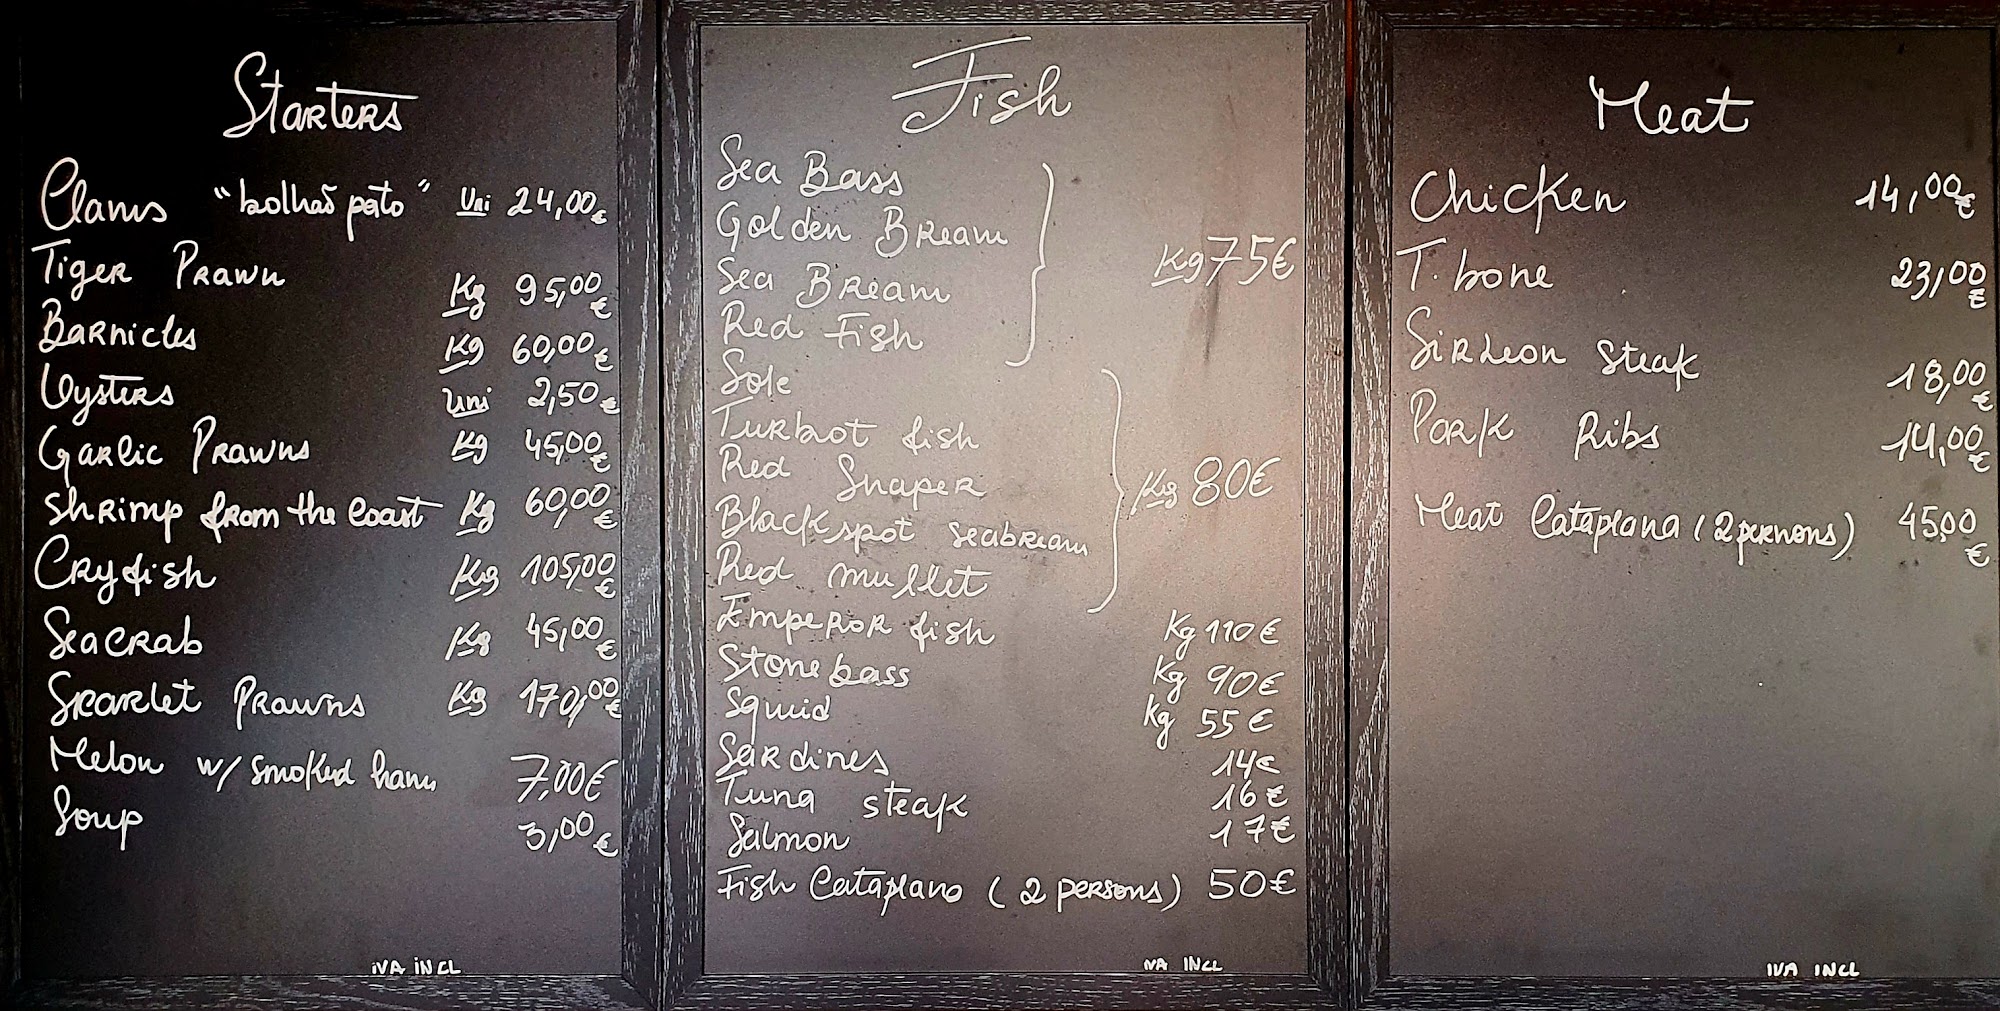 Starters
Clams "bolhão pato" Uni 24,00€
Tiger Prawn Kg 95,00€
Barnicles Kg 60,00€
Oysters Uni 2,50€
Garlic Prawns Kg 45,00€
Shrimp from the coast Kg 60,00€
Cryfish Kg 105,00€
Seacrab Kg 45,00€
Skarlet Prawns Kg 170,00€
Melon w/ smoked ham 7,00€
Soup 3,00€
iVA iNCL
Fish
Sea Bass
Golden Bream
Sea Bream
Red Fish
Kg 75€
Sole
Turbot fish
Red Snaper
Blackspot seabream
Red mullet
Kg 80€
Emperor fish Kg 110€
Stonebass Kg 90€
Squid Kg 55€
Sardines 14€
Tuna steak 16€
Salmon 17€
Fish Cataplana (2 persons) 50€
IVA INCL
Meat
Chicken 14,00€
T.bone 23,00€
Sirleon steak 18,00€
Pork Ribs 14,00€
Meat Cataplana (2 persons) 45,00€
IVA INCL